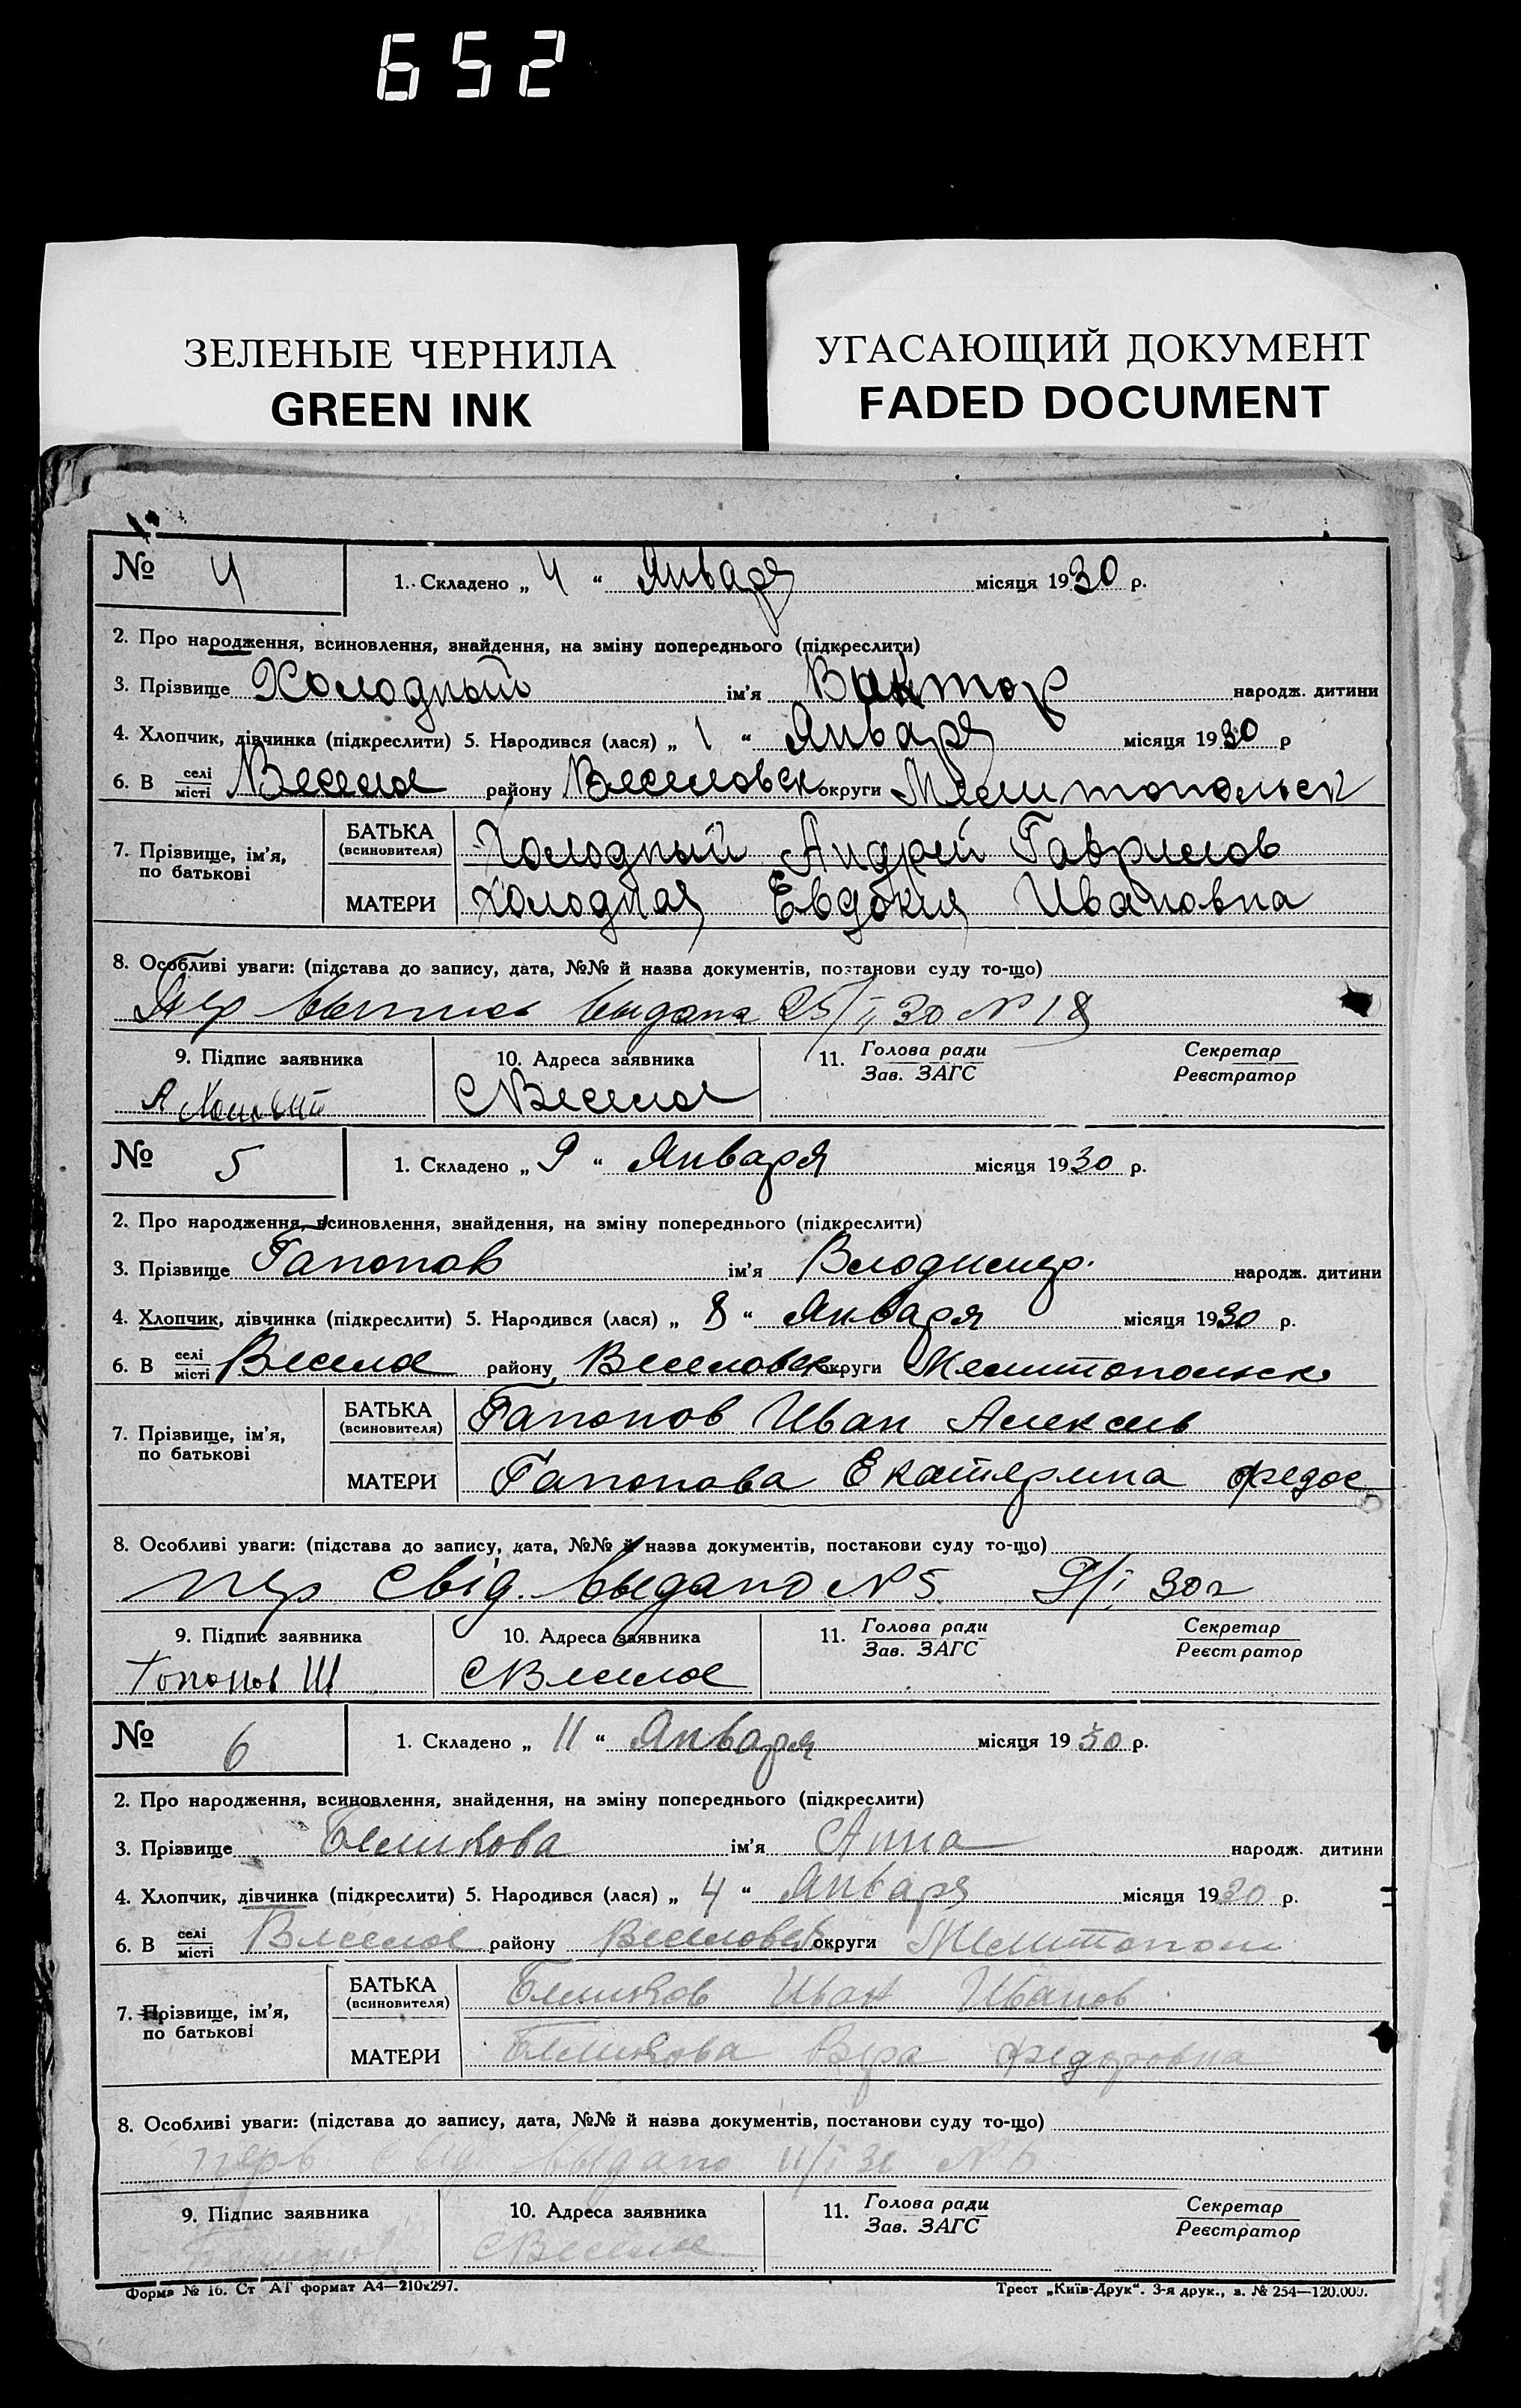 652
ЗЕЛЕНЫЕ ЧЕРНИЛА
GREEN INK
УГАСАЮЩИЙ ДОКУМЕНТ
FADED DOCUMENT
№ 4 1. Складено „ 4 “ Января місяця 1930 р.
2. Про народження, всиновлення, знайдення, на зміну попереднього (підкреслити)
3. Прізвище Холодный ім'я Виктор народж. дитини
4. Хлопчик, дівчинка (підкреслити) 5. Народився (лася) „ 1 “ Января місяця 1930 р
6. В селі/місті Веселое району Веселовск округи Мелитопольск
7. Прізвище, ім'я, по батькові
БАТЬКА (всиновителя) Холодный Андрей Гаврилов
МАТЕРИ Холодная Евдокия Ивановна
8. Особливі уваги: (підстава до запису, дата, №№ й назва документів, постанови суду то-що)
выпись выдана 25/ 30 N 18
9. Підпис заявника 10. Адреса заявника 11. Голова ради/Зав. ЗАГС Секретар/Реєстратор
А С Веселое
№ 5 1. Складено „ 9 “ Января місяця 1930 р.
2. Про народження, всиновлення, знайдення, на зміну попереднього (підкреслити)
3. Прізвище Гапонов ім'я Влодимир. народж. дитини
4. Хлопчик, дівчинка (підкреслити) 5. Народився (лася) „ 8 “ Января місяця 1930 р.
6. В селі/місті Веселое району Веселовск округи Мелитопольск
7. Прізвище, ім'я, по батькові
БАТЬКА (всиновителя) Гапонов Иван Алексеев
МАТЕРИ Гапонова Екатерина Федос
8. Особливі уваги: (підстава до запису, дата, №№ й назва документів, постанови суду то-що)
пер свід. выдано N 5. 9/I 30г
9. Підпис заявника 10. Адреса заявника 11. Голова ради/Зав. ЗАГС Секретар/Реєстратор
Гопонов С Веселое
№ 6 1. Складено „ 11 “ Января місяця 1930 р.
2. Про народження, всиновлення, знайдення, на зміну попереднього (підкреслити)
3. Прізвище Беликова ім'я Анна народж. дитини
4. Хлопчик, дівчинка (підкреслити) 5. Народився (лася) „ 4 “ Января місяця 1930 р.
6. В селі/місті Веселое району Веселовск округи Мелитопол
7. Прізвище, ім'я, по батькові
БАТЬКА (всиновителя) Беликов Иван Иванов
МАТЕРИ Беликова Вера Федоровна
8. Особливі уваги: (підстава до запису, дата, №№ й назва документів, постанови суду то-що)
перв свид выдано 11/I 30 N 6
9. Підпис заявника 10. Адреса заявника 11. Голова ради/Зав. ЗАГС Секретар/Реєстратор
С Веселое
Форма № 16. Ст АТ формат А4—210х297. Трест „Київ-Друк“. 3-я друк., з. № 254—120.000.